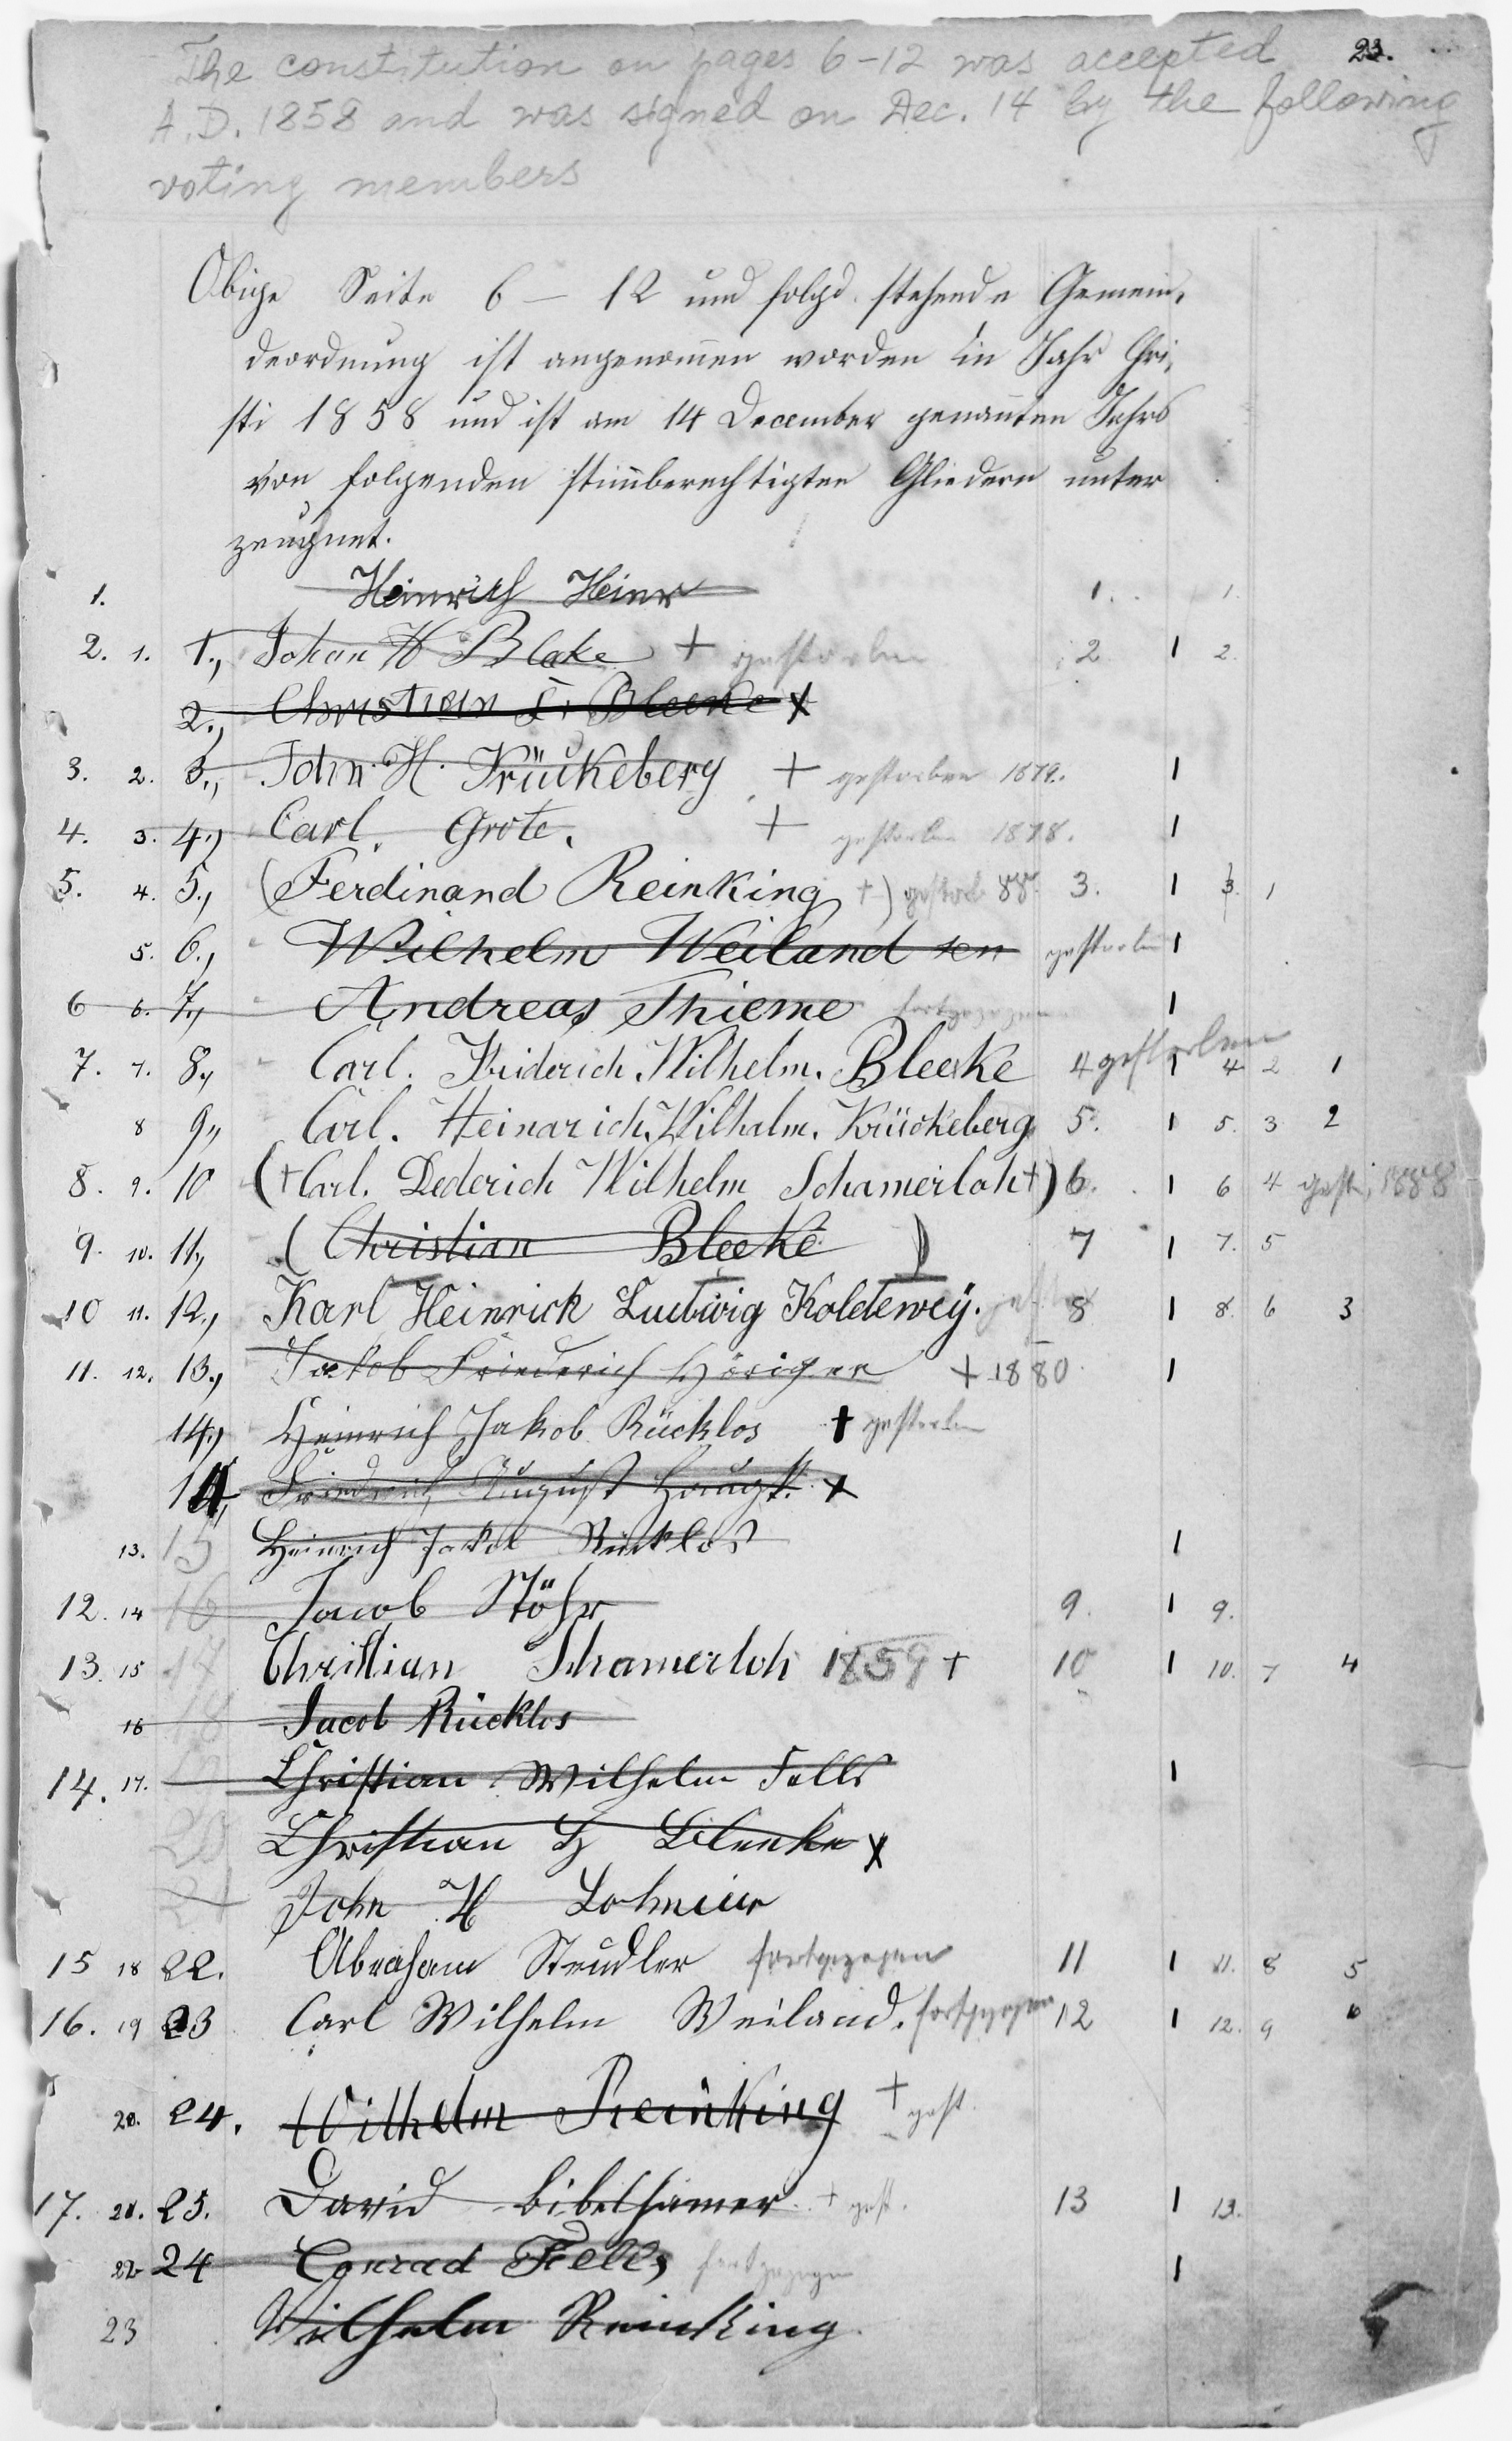 23.
The constitution on pages 6-12 was accepted
A.D. 1858 and was signed on Dec. 14 by the following
voting members
Obige Seite 6 – 12 und folgd. stehende Gemein,
deordnung ist angenommen worden im Jahr Chri,
sti 1858 und ist am 14 December genannten Jahrs
von folgenden stimmberechtigten Gliedern unter
zeugnet.
1. Heinrich Heinr 1. 1.
2. 1. 1., Johan H Blake + gestorben 2 1 2.
2., Christian F. Bleeke x
3. 2. 3., John. H. Krückeberg + gestorben 1879. 1
4. 3. 4., Carl. Grote. + gestorben 1878. 1
5. 4. 5., (Ferdinand Reinking +) gestorb 88 3. 1 3. 1
5. 6., Wilhelm Weiland sen gestorben 1
6 6. 7., Andreas Thieme fortgezogen 1
7. 7. 8., Carl. Friderich. Wilhelm. Bleeke 4 gestorben 1 4 2 1
8 9., Carl. Heinarich. Wilhalm. Krückeberg 5. 1 5. 3 2
8. 9. 10 (+Carl. Dederich Wilhelm Schamerloh+) 6. 1 6 4 gest. 1888
9. 10. 11., (Christian Bleeke) 7 1 7. 5
10 11. 12., Karl Heinrick Ludwig Koldewey. 8 1 8. 6 3
11. 12. 13., Jakob Friederich Höriger + 1880. 1
14., Heinrich Jakob Rücklos + gestorben
14, Friedrich August Haupt. x
13. 15 Heinrich Jakob Rücklos 1
12. 14 16 Jacob Stöhr 9. 1 9.
13. 15 17 Christian Schamerloh 1859 + 10 1 10. 7 4
16 18 Jacob Rücklos
14. 17. Christian Wilhelm Fells 1
20 Christian F Bleeke x
21 John H Lohmeier
15 18 22. Abraham Steudler fortgezogen 11 1 11. 8 5
16. 19 23 Carl Wilhelm Weiland. fortgezogen 12 1 12. 9 6
20. 24. Wilhelm Reinking + gest.
17. 21. 25. David Bibelhamer. + gest. 13 1 13.
22 24 Conrad Fells fortgezogen 1
23 Wilhelm Reinking.